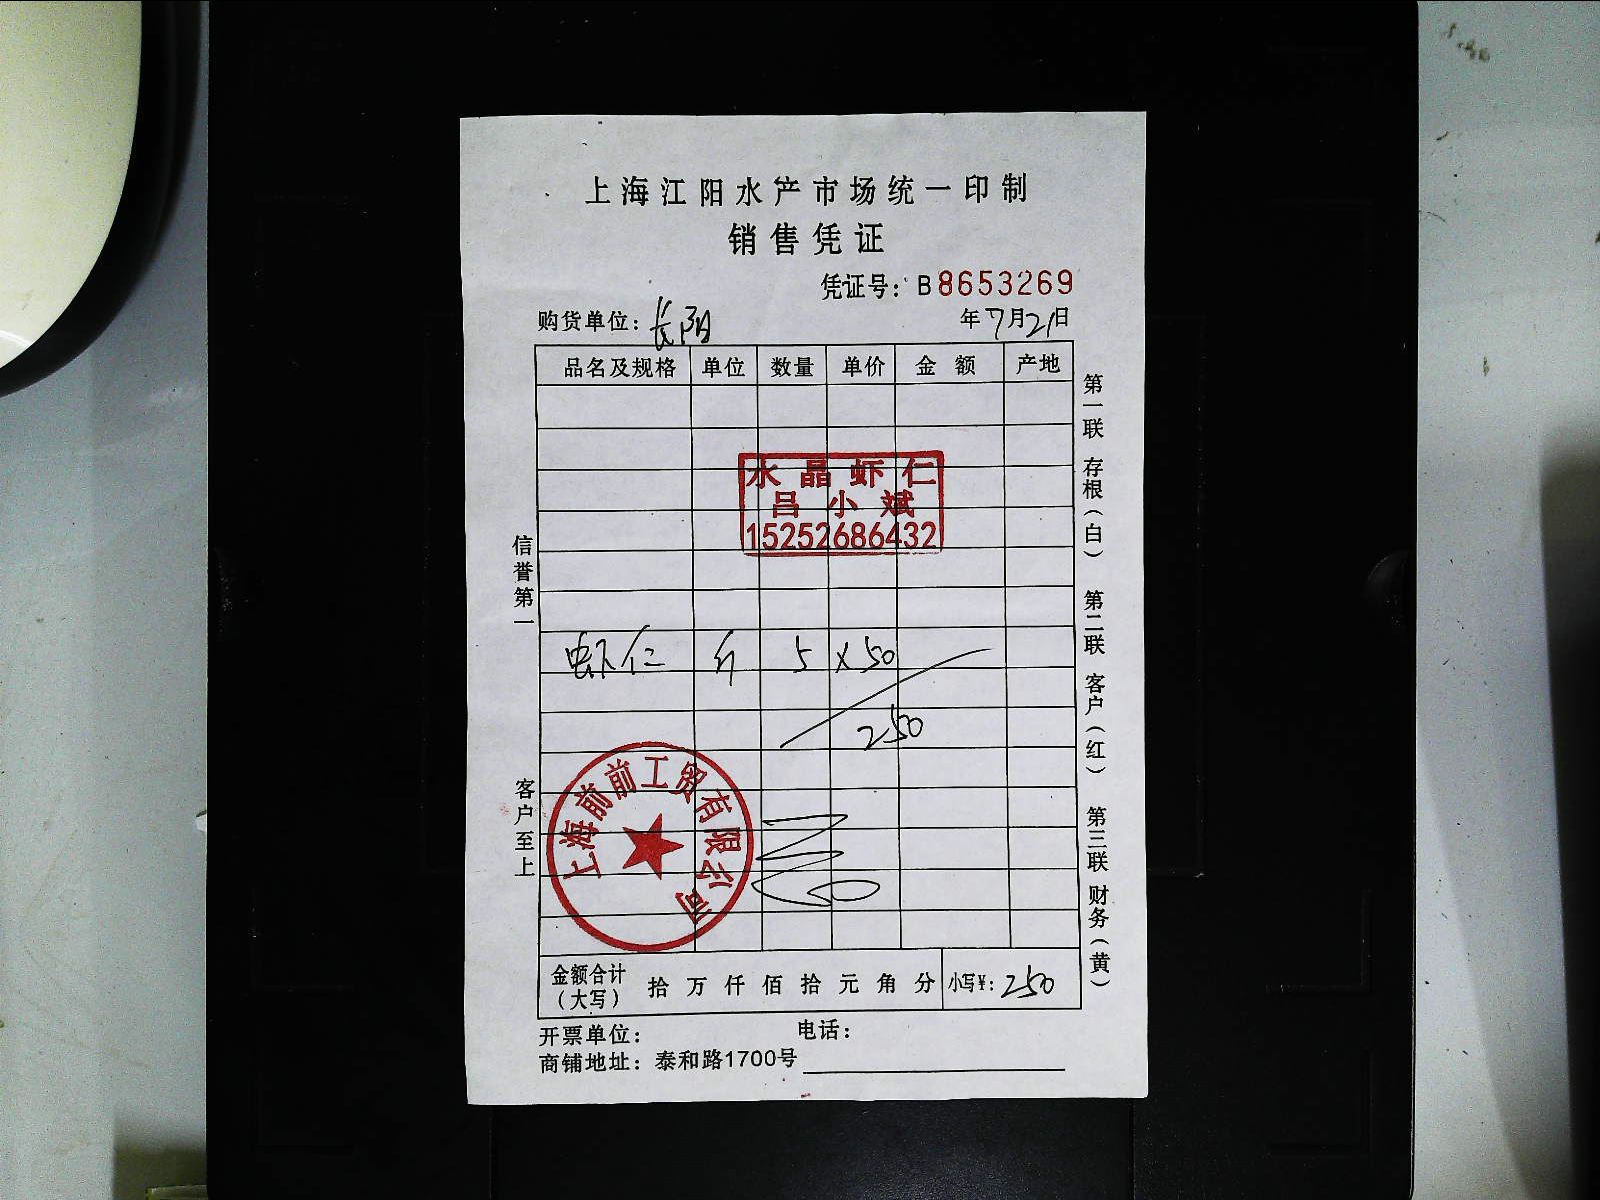 上海江阳水产市场统一印制
销售凭证
凭证号: B8653269
购货单位: 长阳 年7月21日
品名及规格 单位 数量 单价 金额 产地
水晶虾仁
吕小斌
15252686432
虾仁 斤 5 x 50
250
上海前前工贸有限公司
金额合计(大写) 拾万仟佰拾元角分 小写¥: 250
开票单位: 电话:
商铺地址: 泰和路1700号
信誉第一 客户至上
第一联 存根(白) 第二联 客户(红) 第三联 财务(黄)